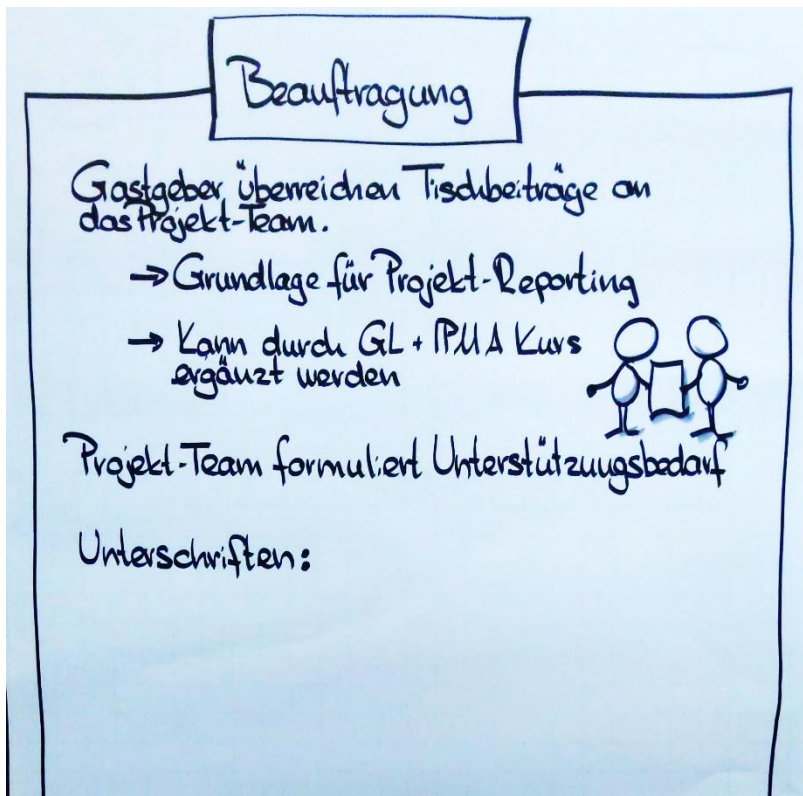 Beauftragung
Gastgeber überreichen Tischbeiträge an
das Projekt-Team.
→ Grundlage für Projekt-Reporting
→ Kann durch GL + IPMA Kurs
ergänzt werden
Projekt-Team formuliert Unterstützungsbedarf
Unterschriften: